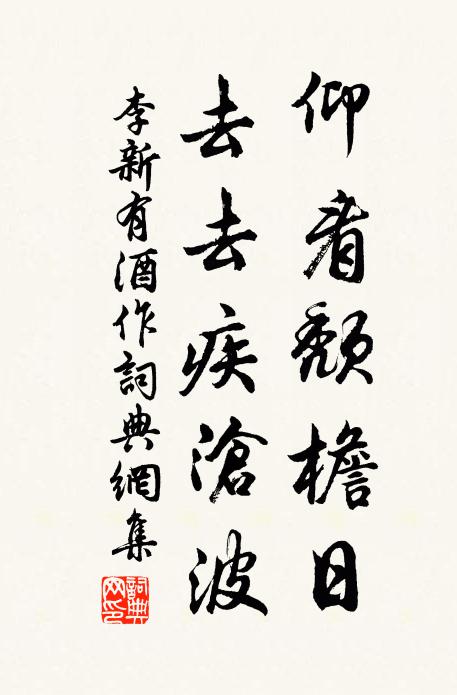 仰看頹檐日
去去疾滄波
李新有酒作詞典網集
詞典網印